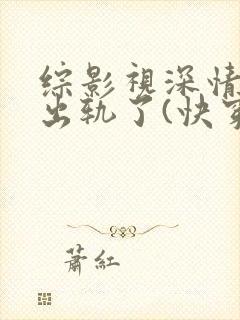 综影视深情
出轨了(快穿
萧红